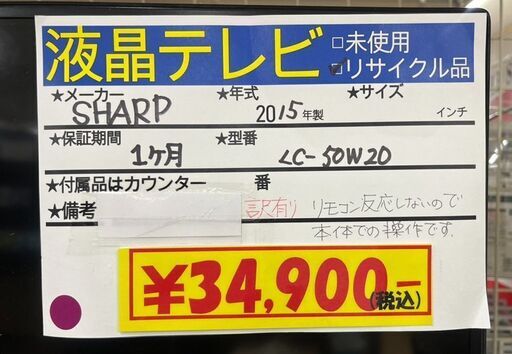 液晶テレビ
□未使用
☑リサイクル品
★メーカー ★年式 ★サイズ
SHARP 2015年製 インチ
★保証期間 ★型番
1ヶ月 LC-50W20
★付属品はカウンター 番
★備考 訳有り リモコン反応しないので
本体での操作です.
¥34,900-
(税込)